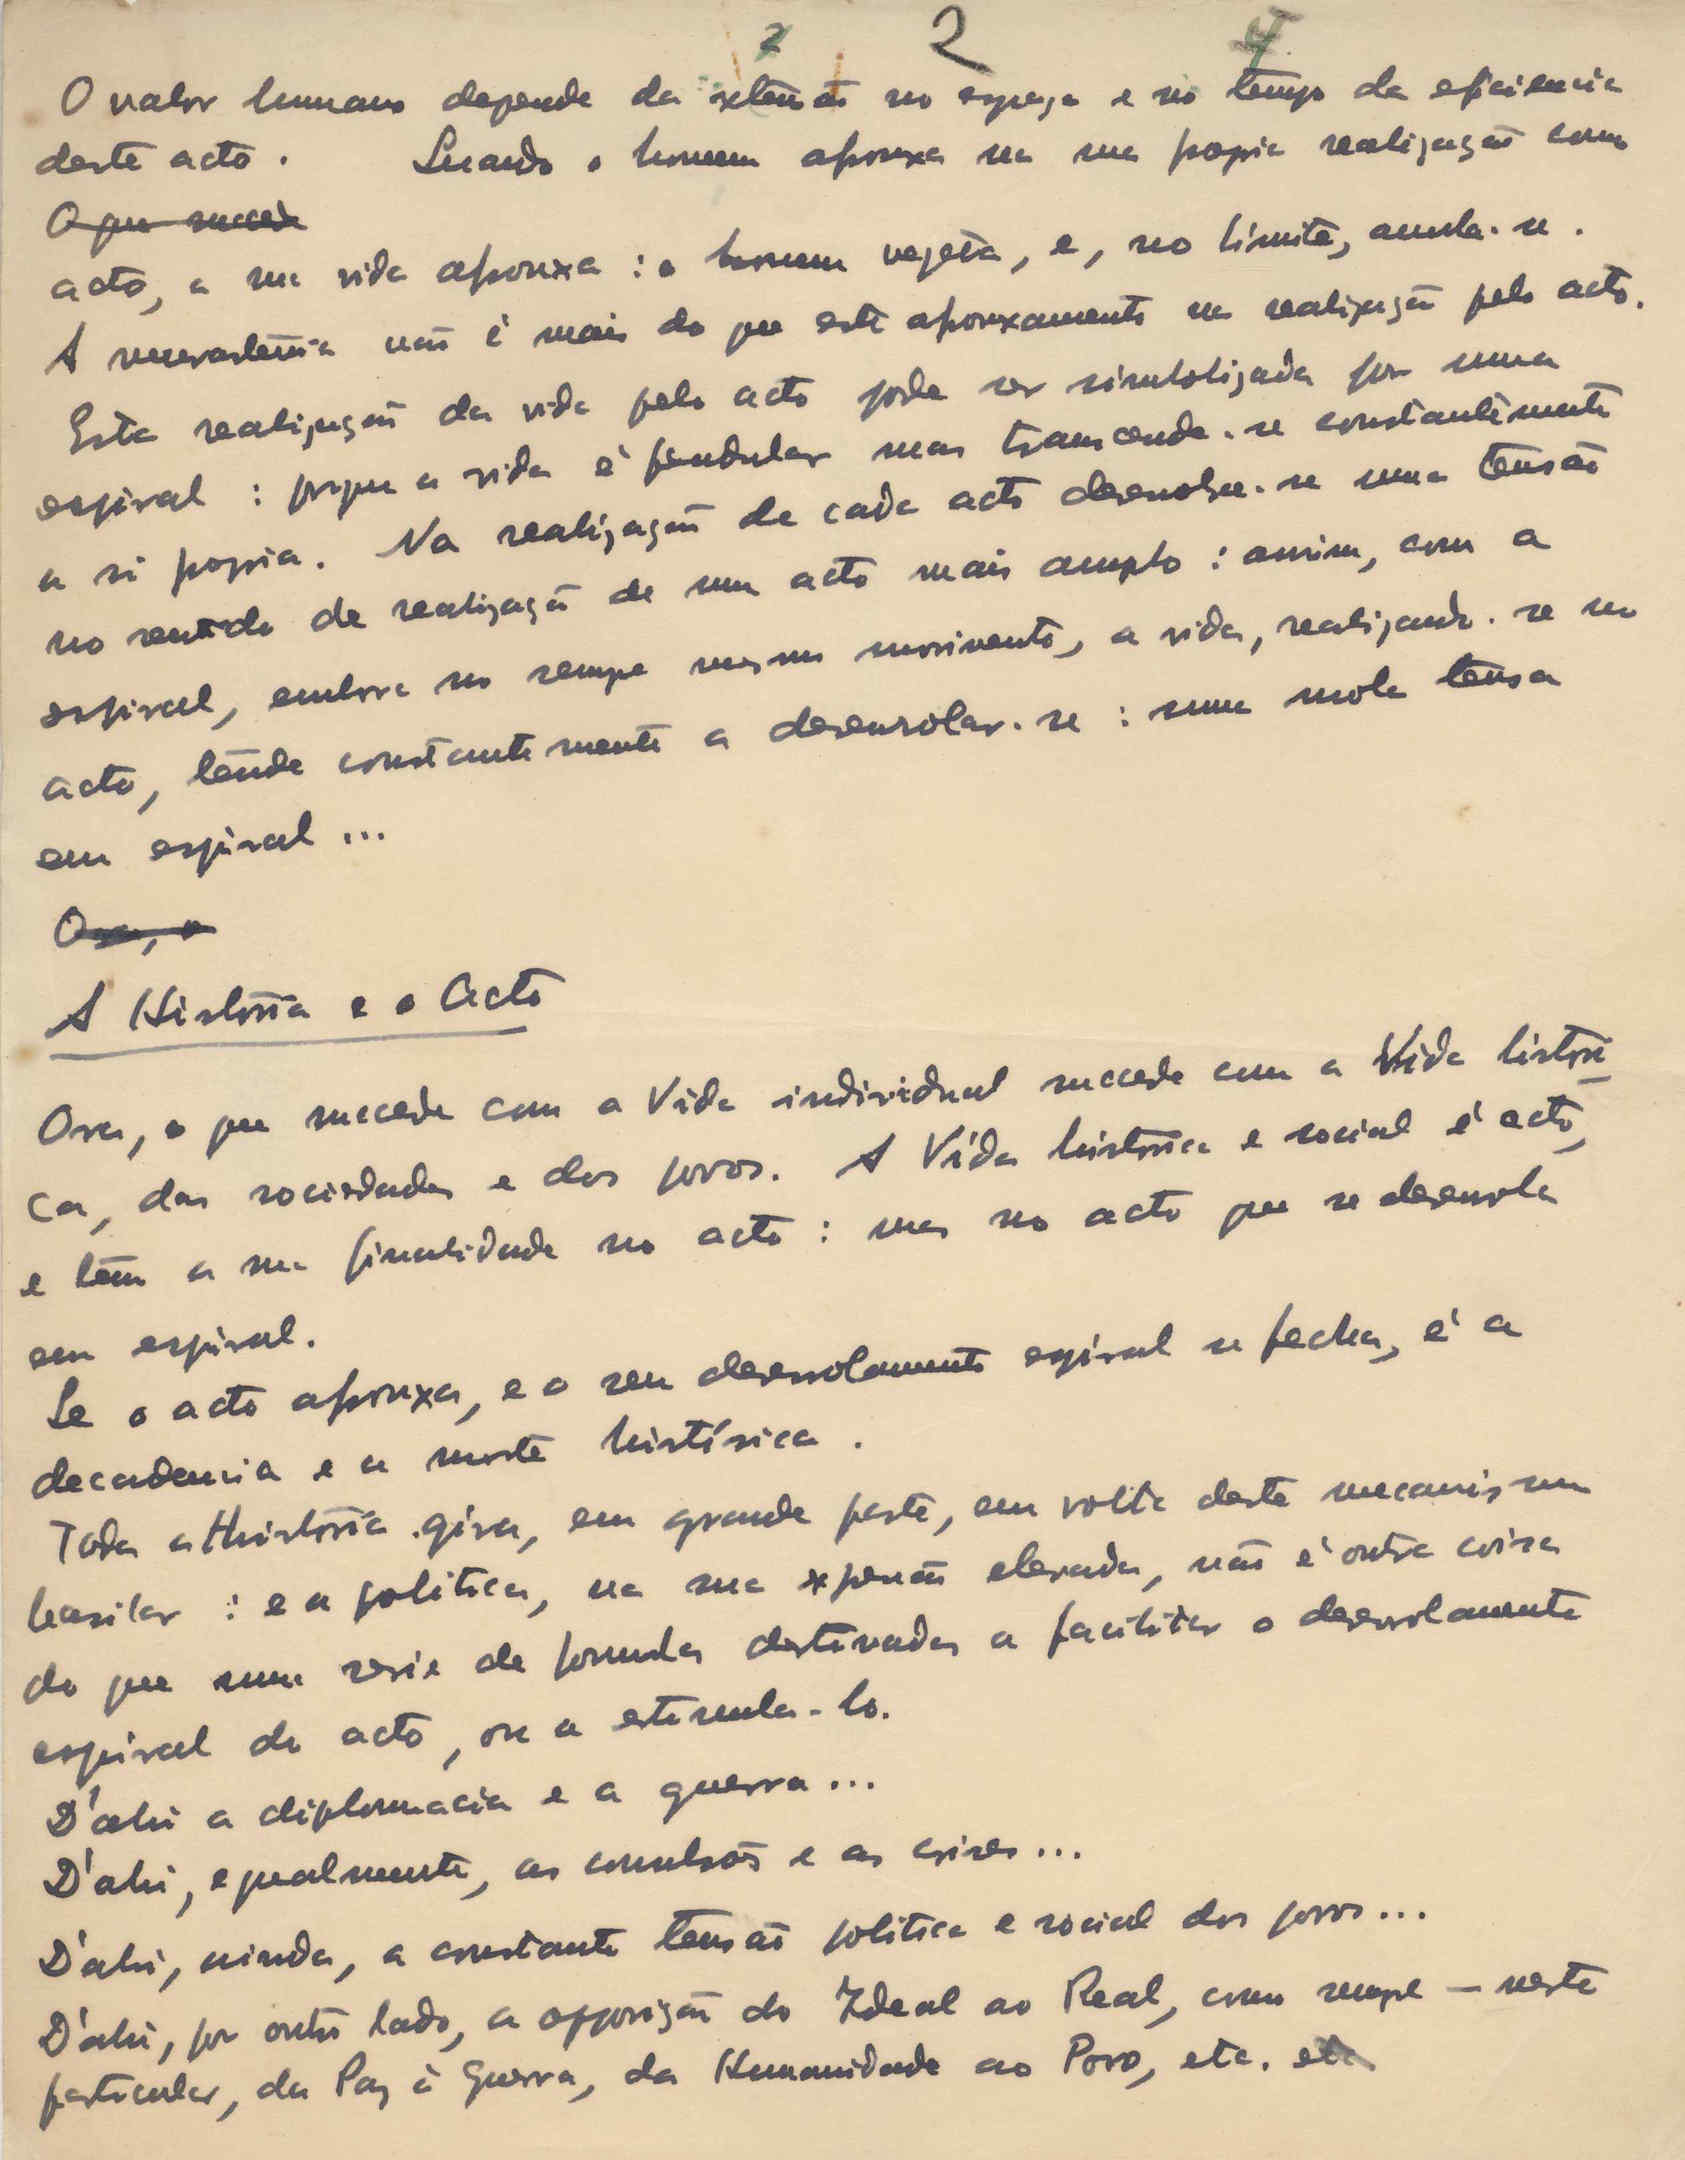 2
O valor humano depende da extensão no espaço e no tempo da eficiencia
deste acto. Quando o homem afrouxa na sua propria realização como
O que succede
acto, a sua vida afrouxa: o homem vegeta, e, no limite, anula-se.
A neurastenia não é mais do que este afrouxamento na realização pelo acto.
Esta realização da vida pelo acto pode ser simbolizada por uma
espiral: porque a vida é pendular mas transcende-se constantemente
a si propria. Na realização de cada acto desenvolve-se uma tensão
no sentido de realização de um acto mais amplo: assim, com a
espiral, embora no sempre mesmo movimento, a vida, realizando-se no
acto, tende constantemente a desenrolar-se: uma mola tensa
em espiral...
Ora, o
A História e o Acto
Ora, o que succede com a Vida individual succede com a Vida histori
ca, das sociedades e dos povos. A Vida historica e social é acto,
e tem a sua finalidade no acto: mas no acto que se desenrola
em espiral.
Se o acto afrouxa, e o seu desenrolamento espiral se fecha, é a
decadencia e a morte histórica.
Toda a História gira, em grande parte, em volta deste mecanismo
basilar: e a politica, na sua expressão elevada, não é outra coisa
do que uma serie de formulas destinadas a facilitar o desenrolamento
espiral do acto, ou a estimula-lo.
D'ahi a diplomacia e a guerra...
D'ahi, egualmente, as convulsões e as crises...
D'ahi, ainda, a constante tensão politica e social dos povos...
D'ahi, por outro lado, a opposição do Ideal ao Real, como sempre — neste
particular, da Paz à Guerra, da Humanidade ao Povo, etc. etc